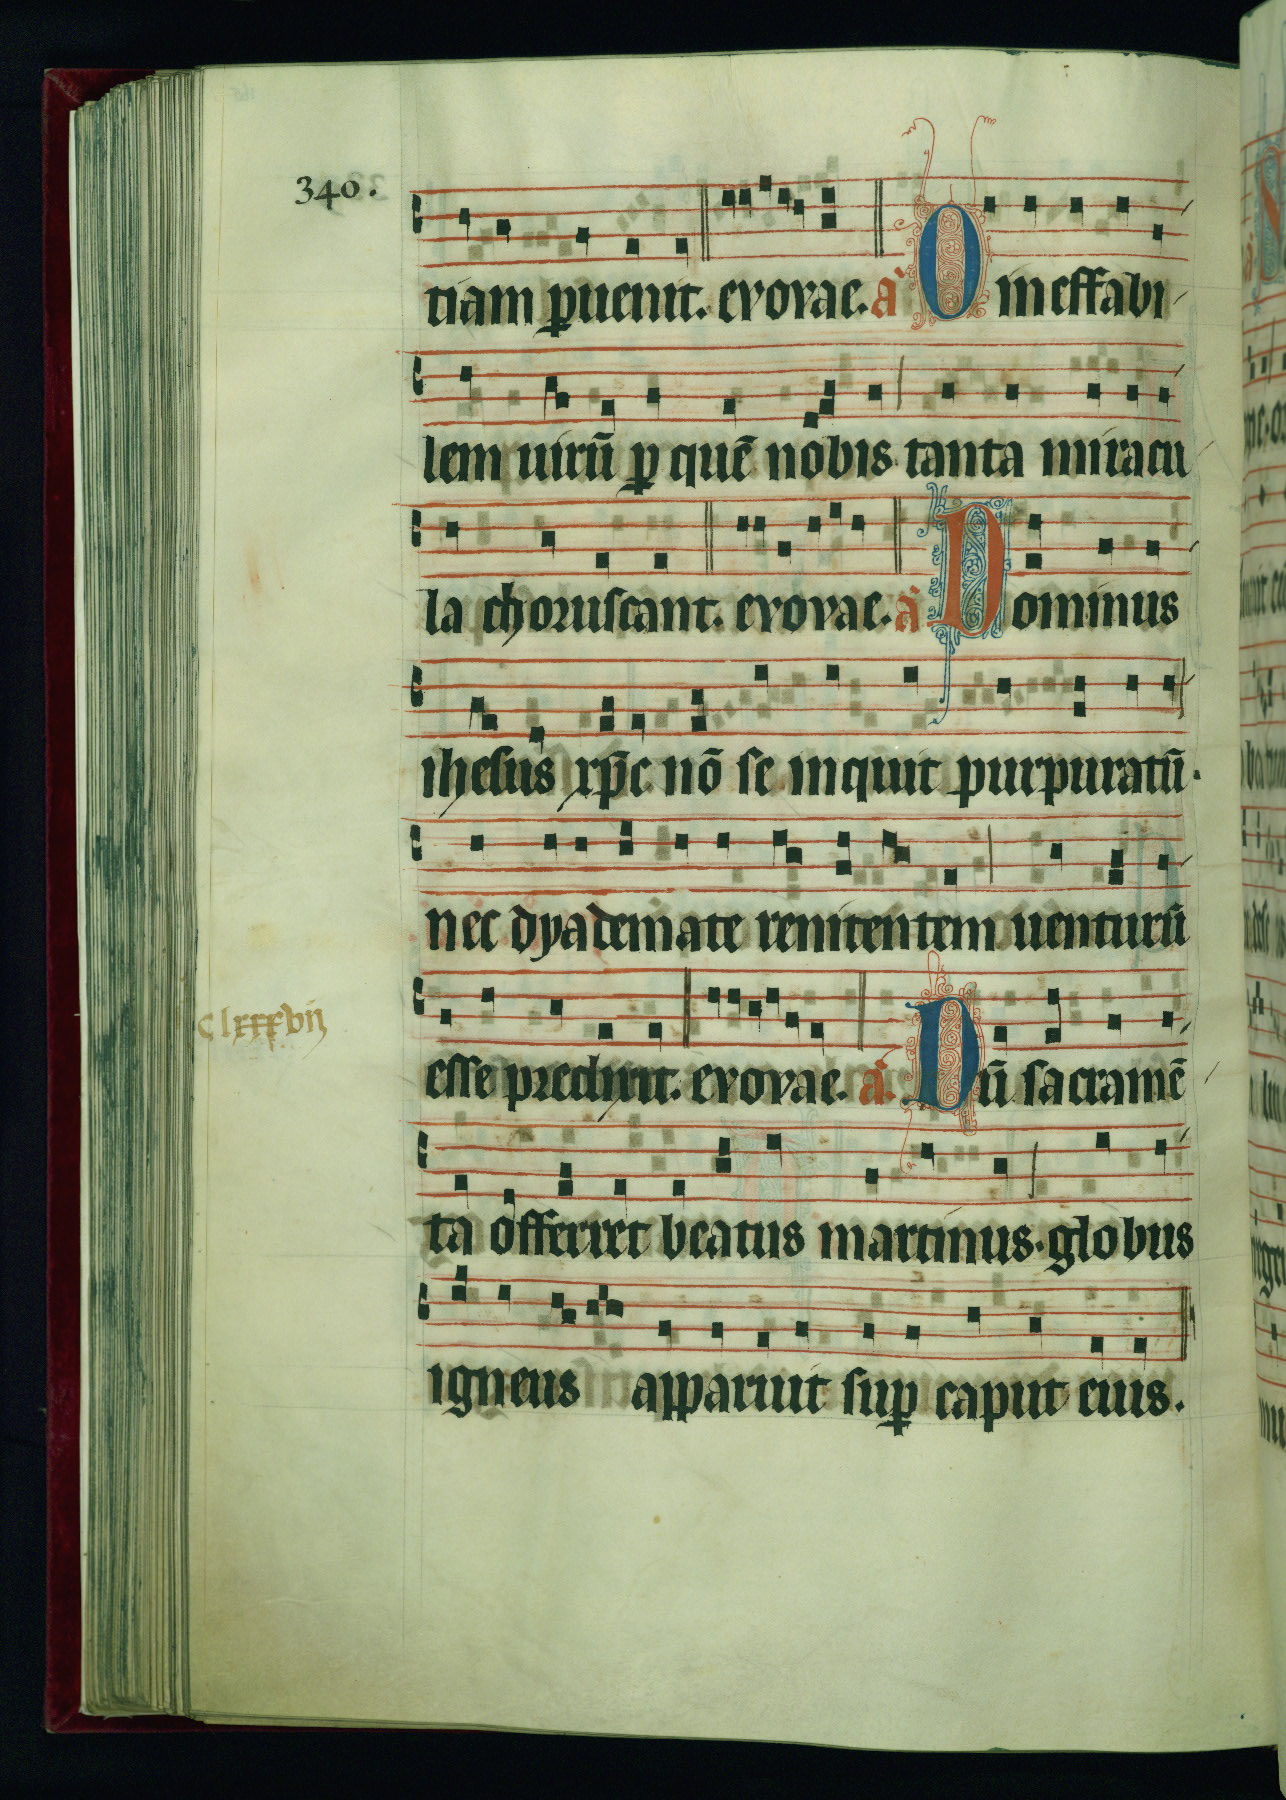 340.
tiam ꝑuenit. evovae. a O ineffabi
lem uirū ꝑ quē nobis tanta miracu
la choruscant. evovae. a Dominus
ihesus xp̄c nō se inquit purpuratū.
nec dyademate renitentem uenturū
esse predixit. evovae. a. Dū sacramē
clxxxvij
ta offerret beatus martinus. globus
igneus apparuit suꝑ caput eius.